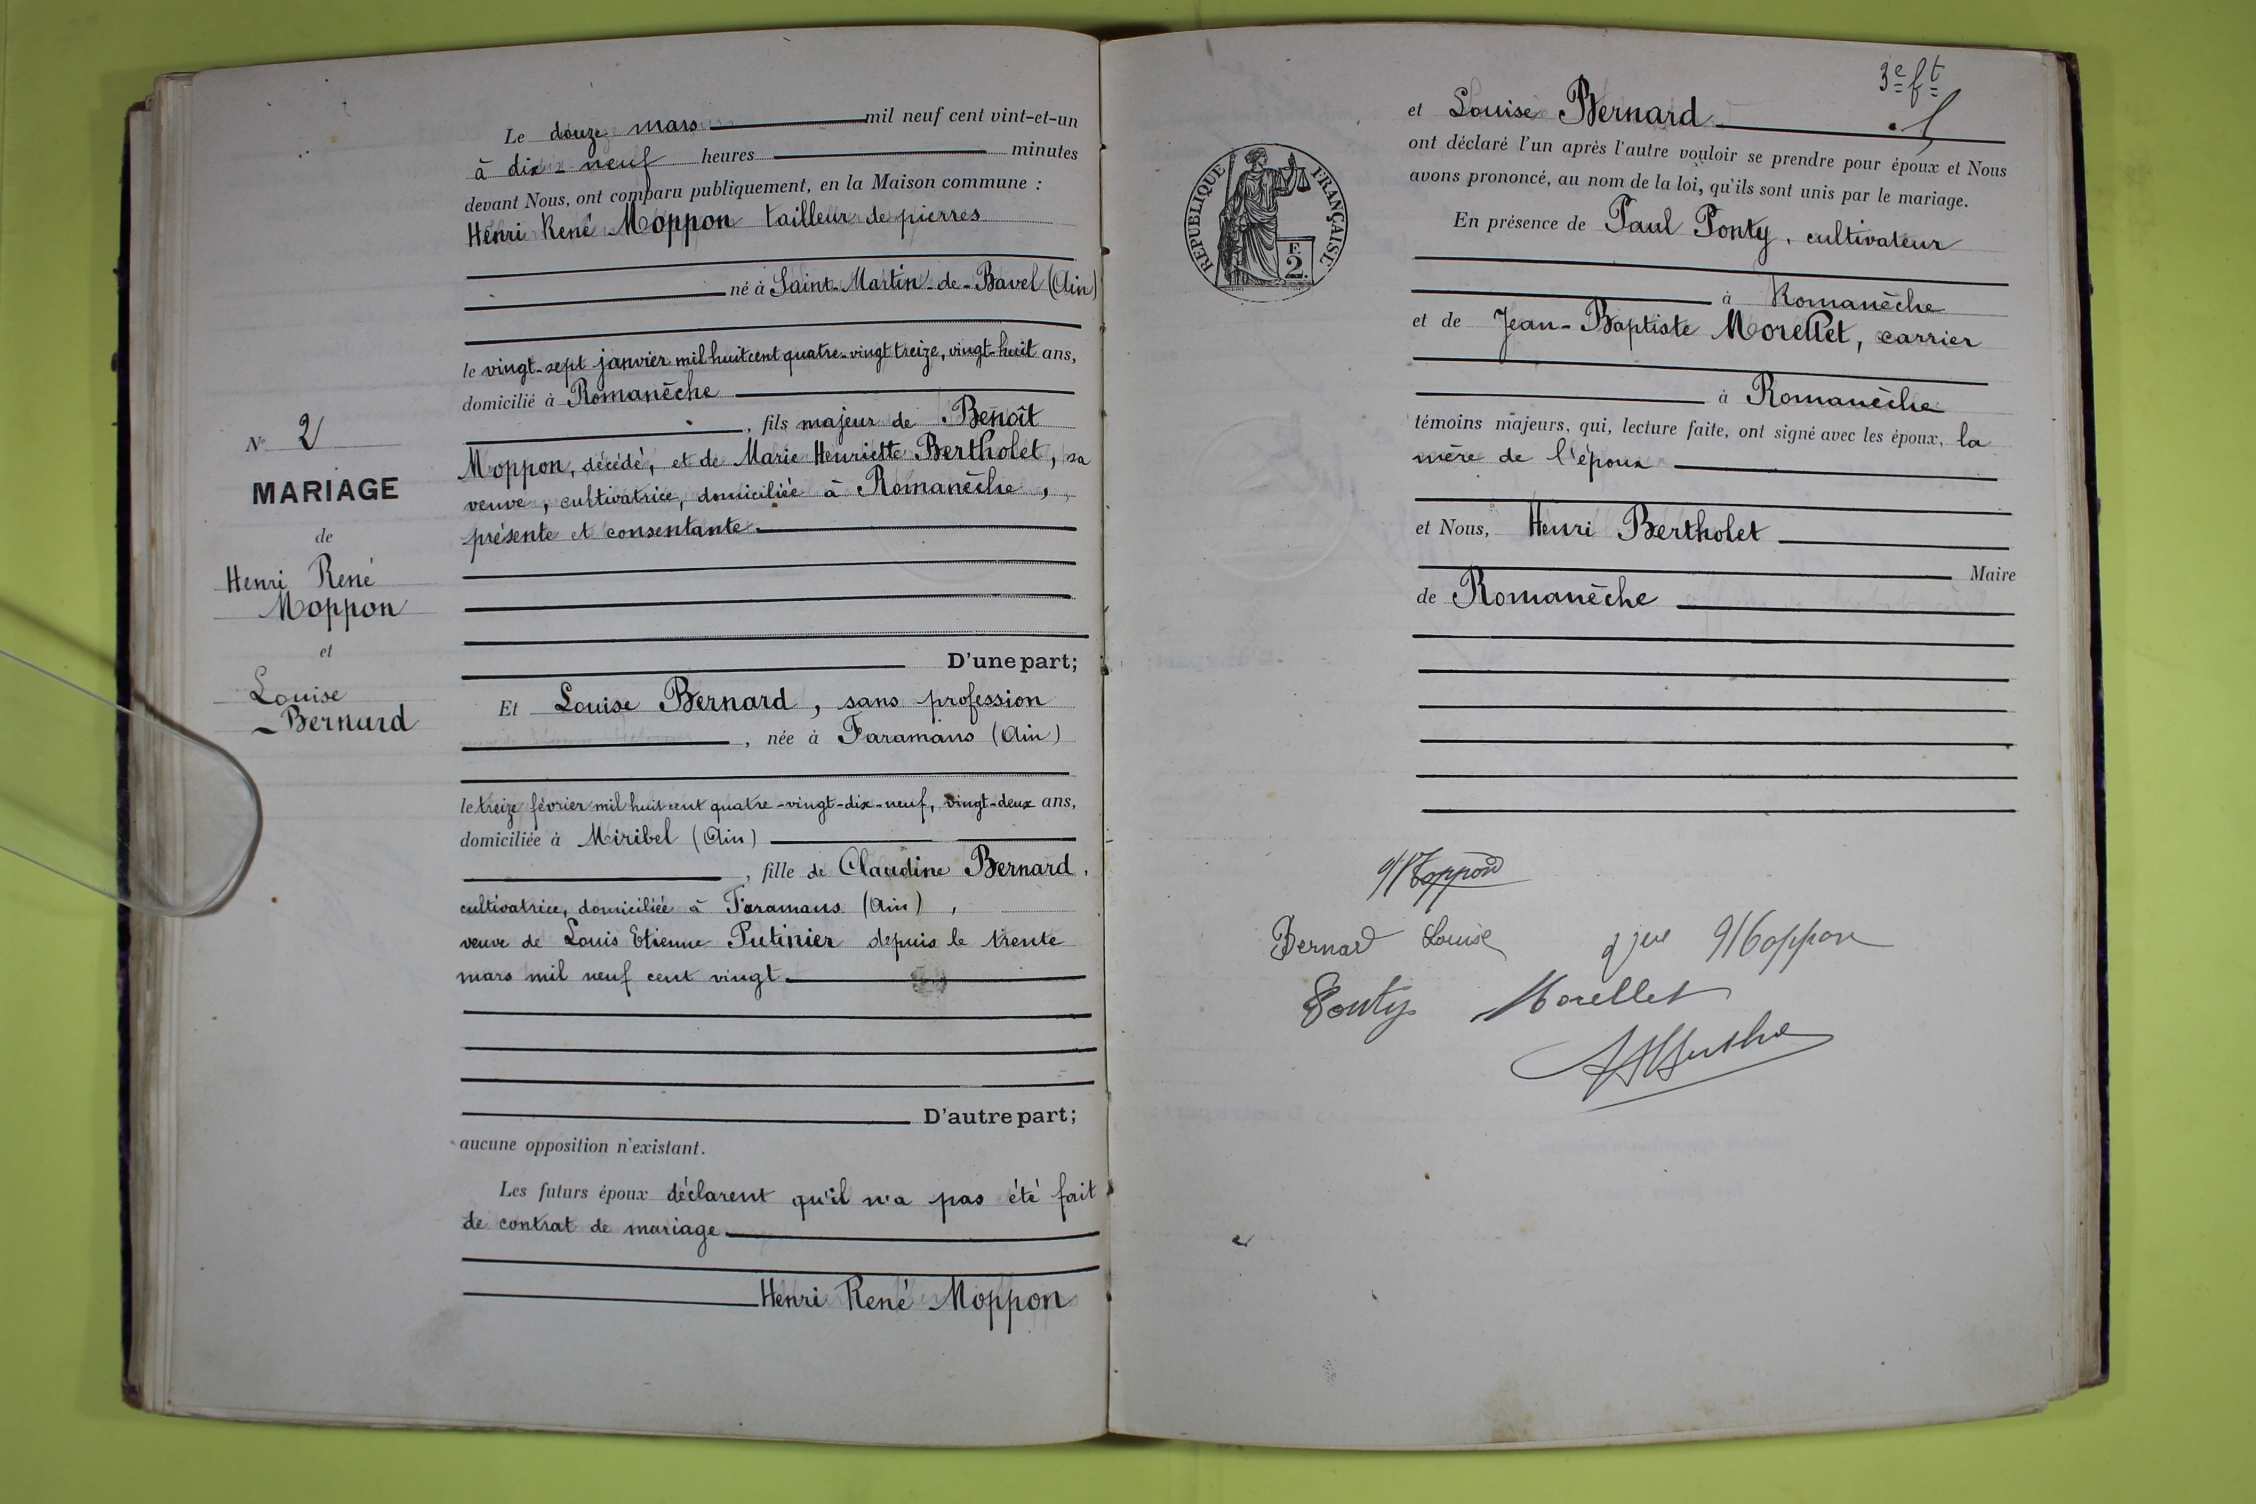 Le douze mars mil neuf cent vint-et-un
à dix-neuf heures minutes
devant Nous, ont comparu publiquement, en la Maison commune :
Henri René Moppon tailleur de pierres
né à Saint-Martin-de-Bavel (Ain)
le vingt-sept janvier mil huit cent quatre-vingt treize, vingt-huit ans,
domicilié à Romanèche
, fils majeur de Benoît
Moppon, décédé, et de Marie Henriette Bertholet, sa
veuve, cultivatrice, domiciliée à Romanèche,
présente et consentante.
N° 2
MARIAGE
de
Henri René
Moppon
et
Louise
Bernard
D'une part;
Et Louise Bernard, sans profession
, née à Faramans (Ain)
le treize février mil huit cent quatre-vingt-dix-neuf, vingt-deux ans,
domiciliée à Miribel (Ain)
, fille de Claudine Bernard,
cultivatrice, domiciliée à Faramans (Ain),
veuve de Louis Etienne Putinier depuis le trente
mars mil neuf cent vingt
D'autre part;
aucune opposition n'existant.
Les futurs époux déclarent qu'il n'a pas été fait
de contrat de mariage
Henri René Moppon
3e ft
et Louise Bernard
ont déclaré l'un après l'autre vouloir se prendre pour époux et Nous
avons prononcé, au nom de la loi, qu'ils sont unis par le mariage.
REPUBLIQUE FRANÇAISE
F.
2.
En présence de Paul Ponty, cultivateur
à Romanèche
et de Jean-Baptiste Morellet, carrier
à Romanèche
témoins majeurs, qui, lecture faite, ont signé avec les époux, la
mère de l'époux
et Nous, Henri Bertholet
Maire
de Romanèche
Moppon
Bernard Louise
Moppon
Ponty Morellet